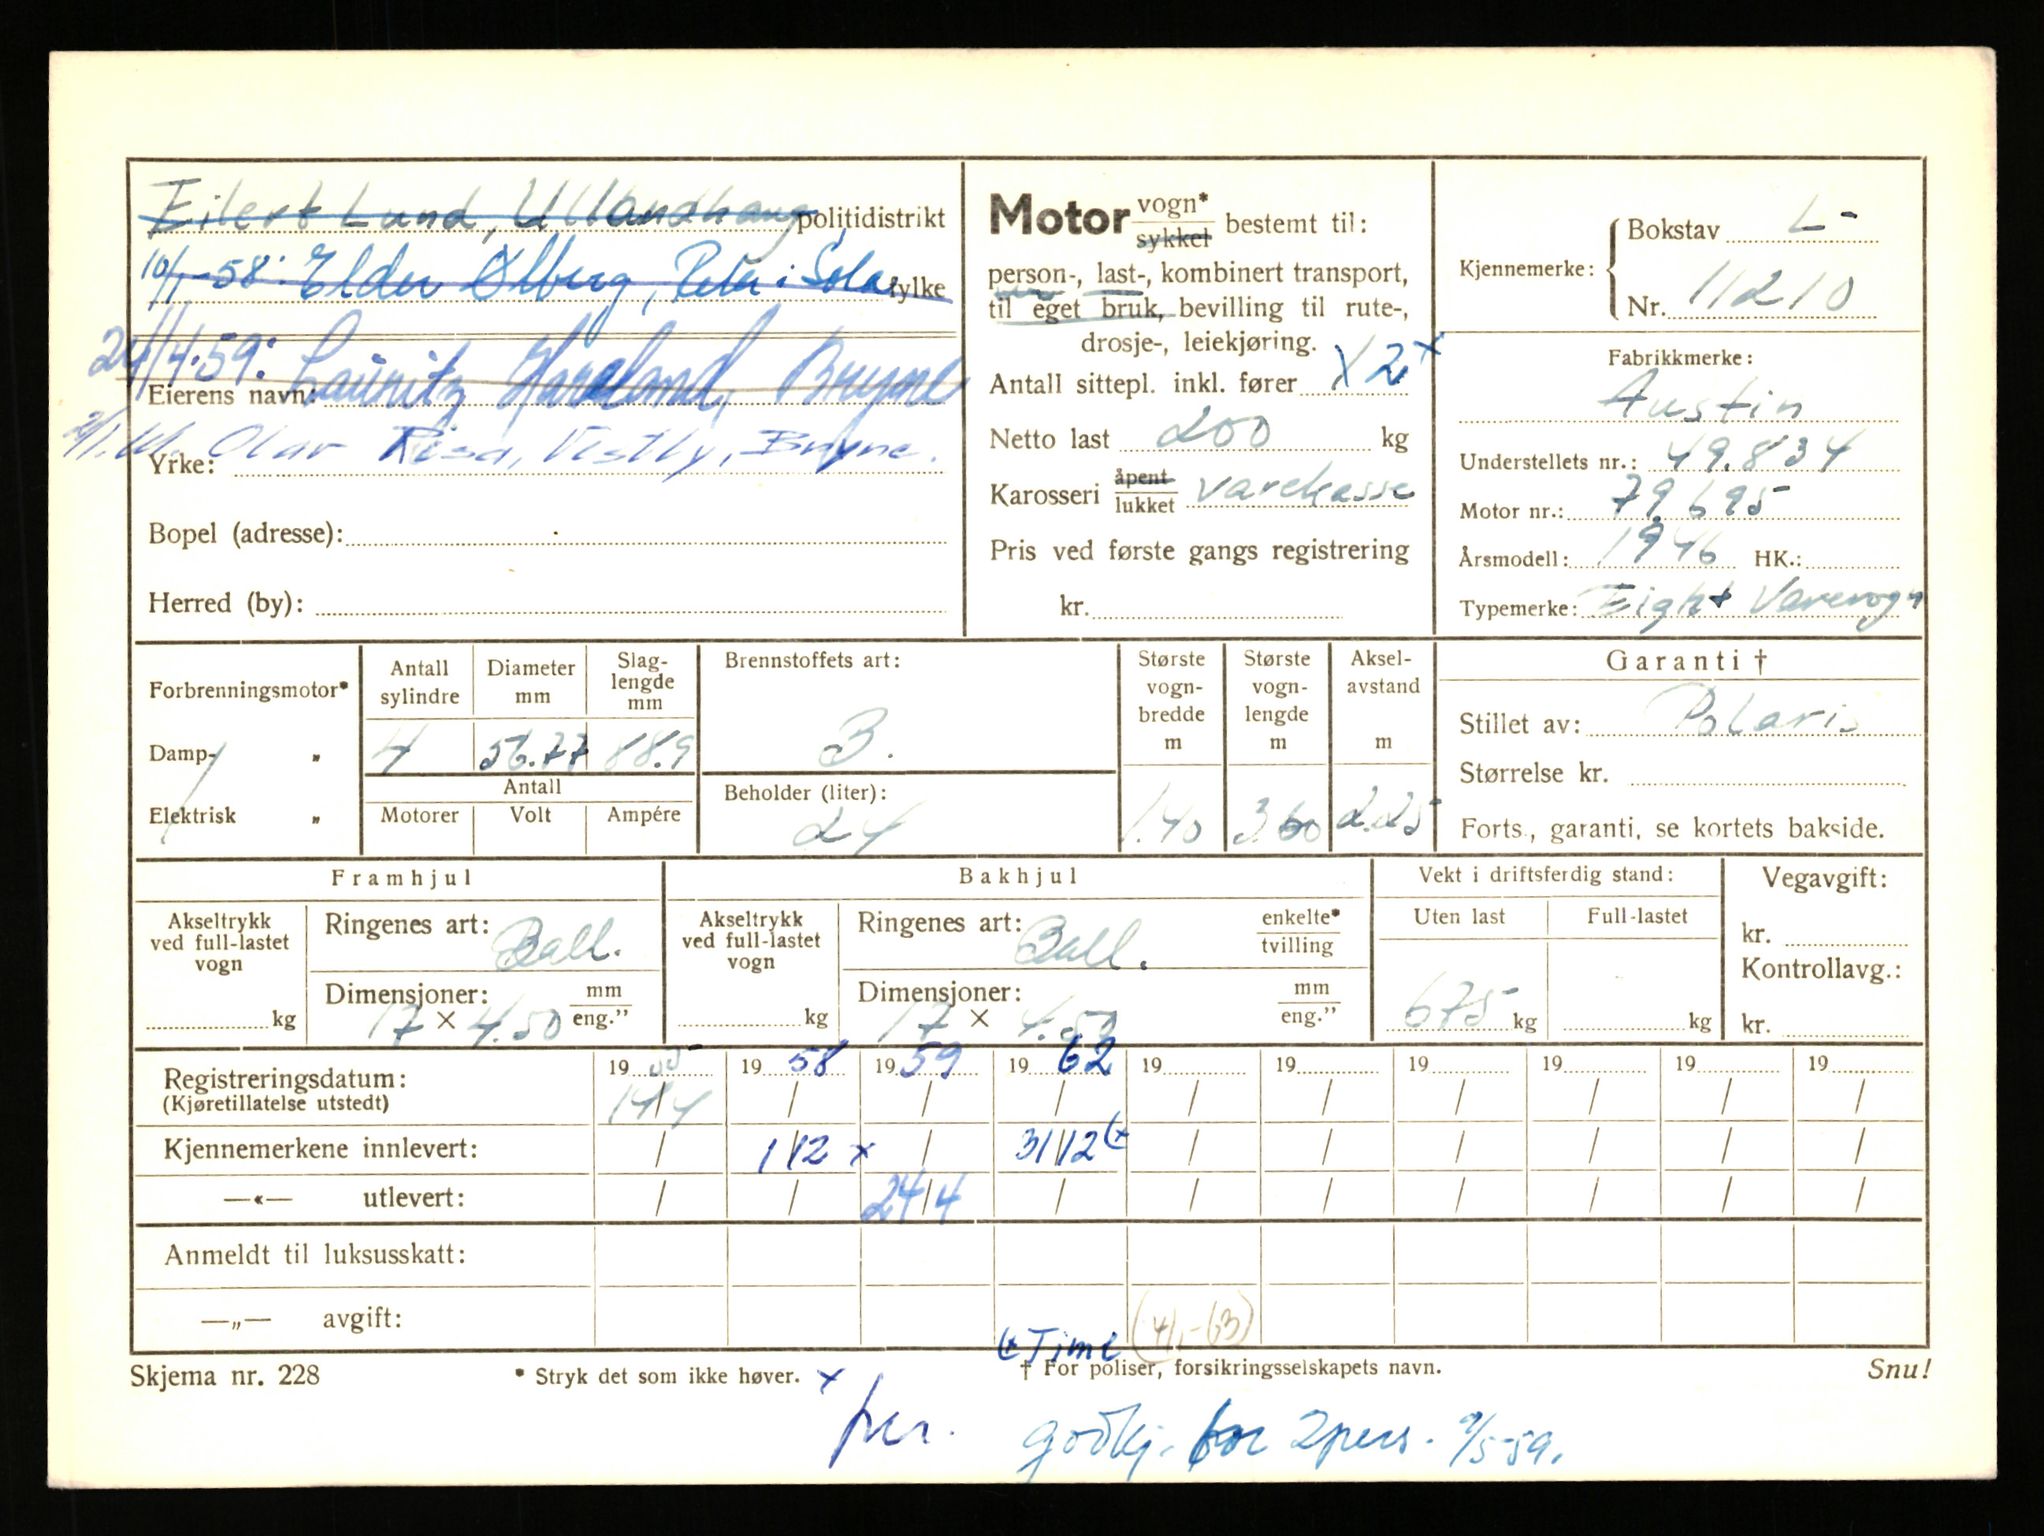 Eilert Lund, Ullandhaug politidistrikt
10/1-58: Elder Ølberg, i Sola fylke
24/4-59: Lauritz Haveland, Bryne
Eierens navn:
Olav Risa, Vestly, Bryne.
Yrke:
Bopel (adresse):
Herred (by):
Motor vogn* sykkel bestemt til:
person-, last-, kombinert transport,
til eget bruk, bevilling til rute-,
drosje-, leiekjøring.
Antall sittepl. inkl. fører 2 x
Netto last 200 kg
Karosseri åpent lukket varekasse
Pris ved første gangs registrering
kr.
Kjennemerke: Bokstav L-
Nr. 11210
Fabrikkmerke:
Austin
Understellets nr.: 49.834
Motor nr.: 79.695
Årsmodell: 1946 HK.:
Typemerke: Eight Varevogn
Forbrenningsmotor*
Damp- "
Elektrisk "
Antall sylindre
4
Diameter mm
56.77
Slag-lengde mm
88.9
Antall
Motorer Volt Ampére
Brennstoffets art:
B.
Beholder (liter):
24
Største vogn-bredde m
1.40
Største vogn-lengde m
3.60
Aksel-avstand m
2.25
Garanti †
Stillet av: Polaris
Størrelse kr.
Forts., garanti, se kortets bakside.
Framhjul
Akseltrykk ved full-lastet vogn
kg
Ringenes art: Ball.
Dimensjoner: mm
17 x 4.50 eng."
Bakhjul
Akseltrykk ved full-lastet vogn
kg
Ringenes art: Ball. enkelte* tvilling
Dimensjoner: mm
17 x 4.50 eng."
Vekt i driftsferdig stand:
Uten last Full-lastet
675 kg kg
Vegavgift:
kr.
Kontrollavg.:
kr.
Registreringsdatum: 1955 1958 1959 1962 19 19 19 19 19 19
(Kjøretillatelse utstedt) 14/4 / / / / / / / / /
Kjennemerkene innlevert: / 1/12 x / 31/12 (x / / / / / /
—«— utlevert: / / 24/4 / / / / / / /
Anmeldt til luksusskatt:
—„— avgift: (4/1-63)
(x Time
Skjema nr. 228 * Stryk det som ikke høver. † For poliser, forsikringsselskapets navn. Snu!
x
godkj. for 2 pers. 9/5-59.